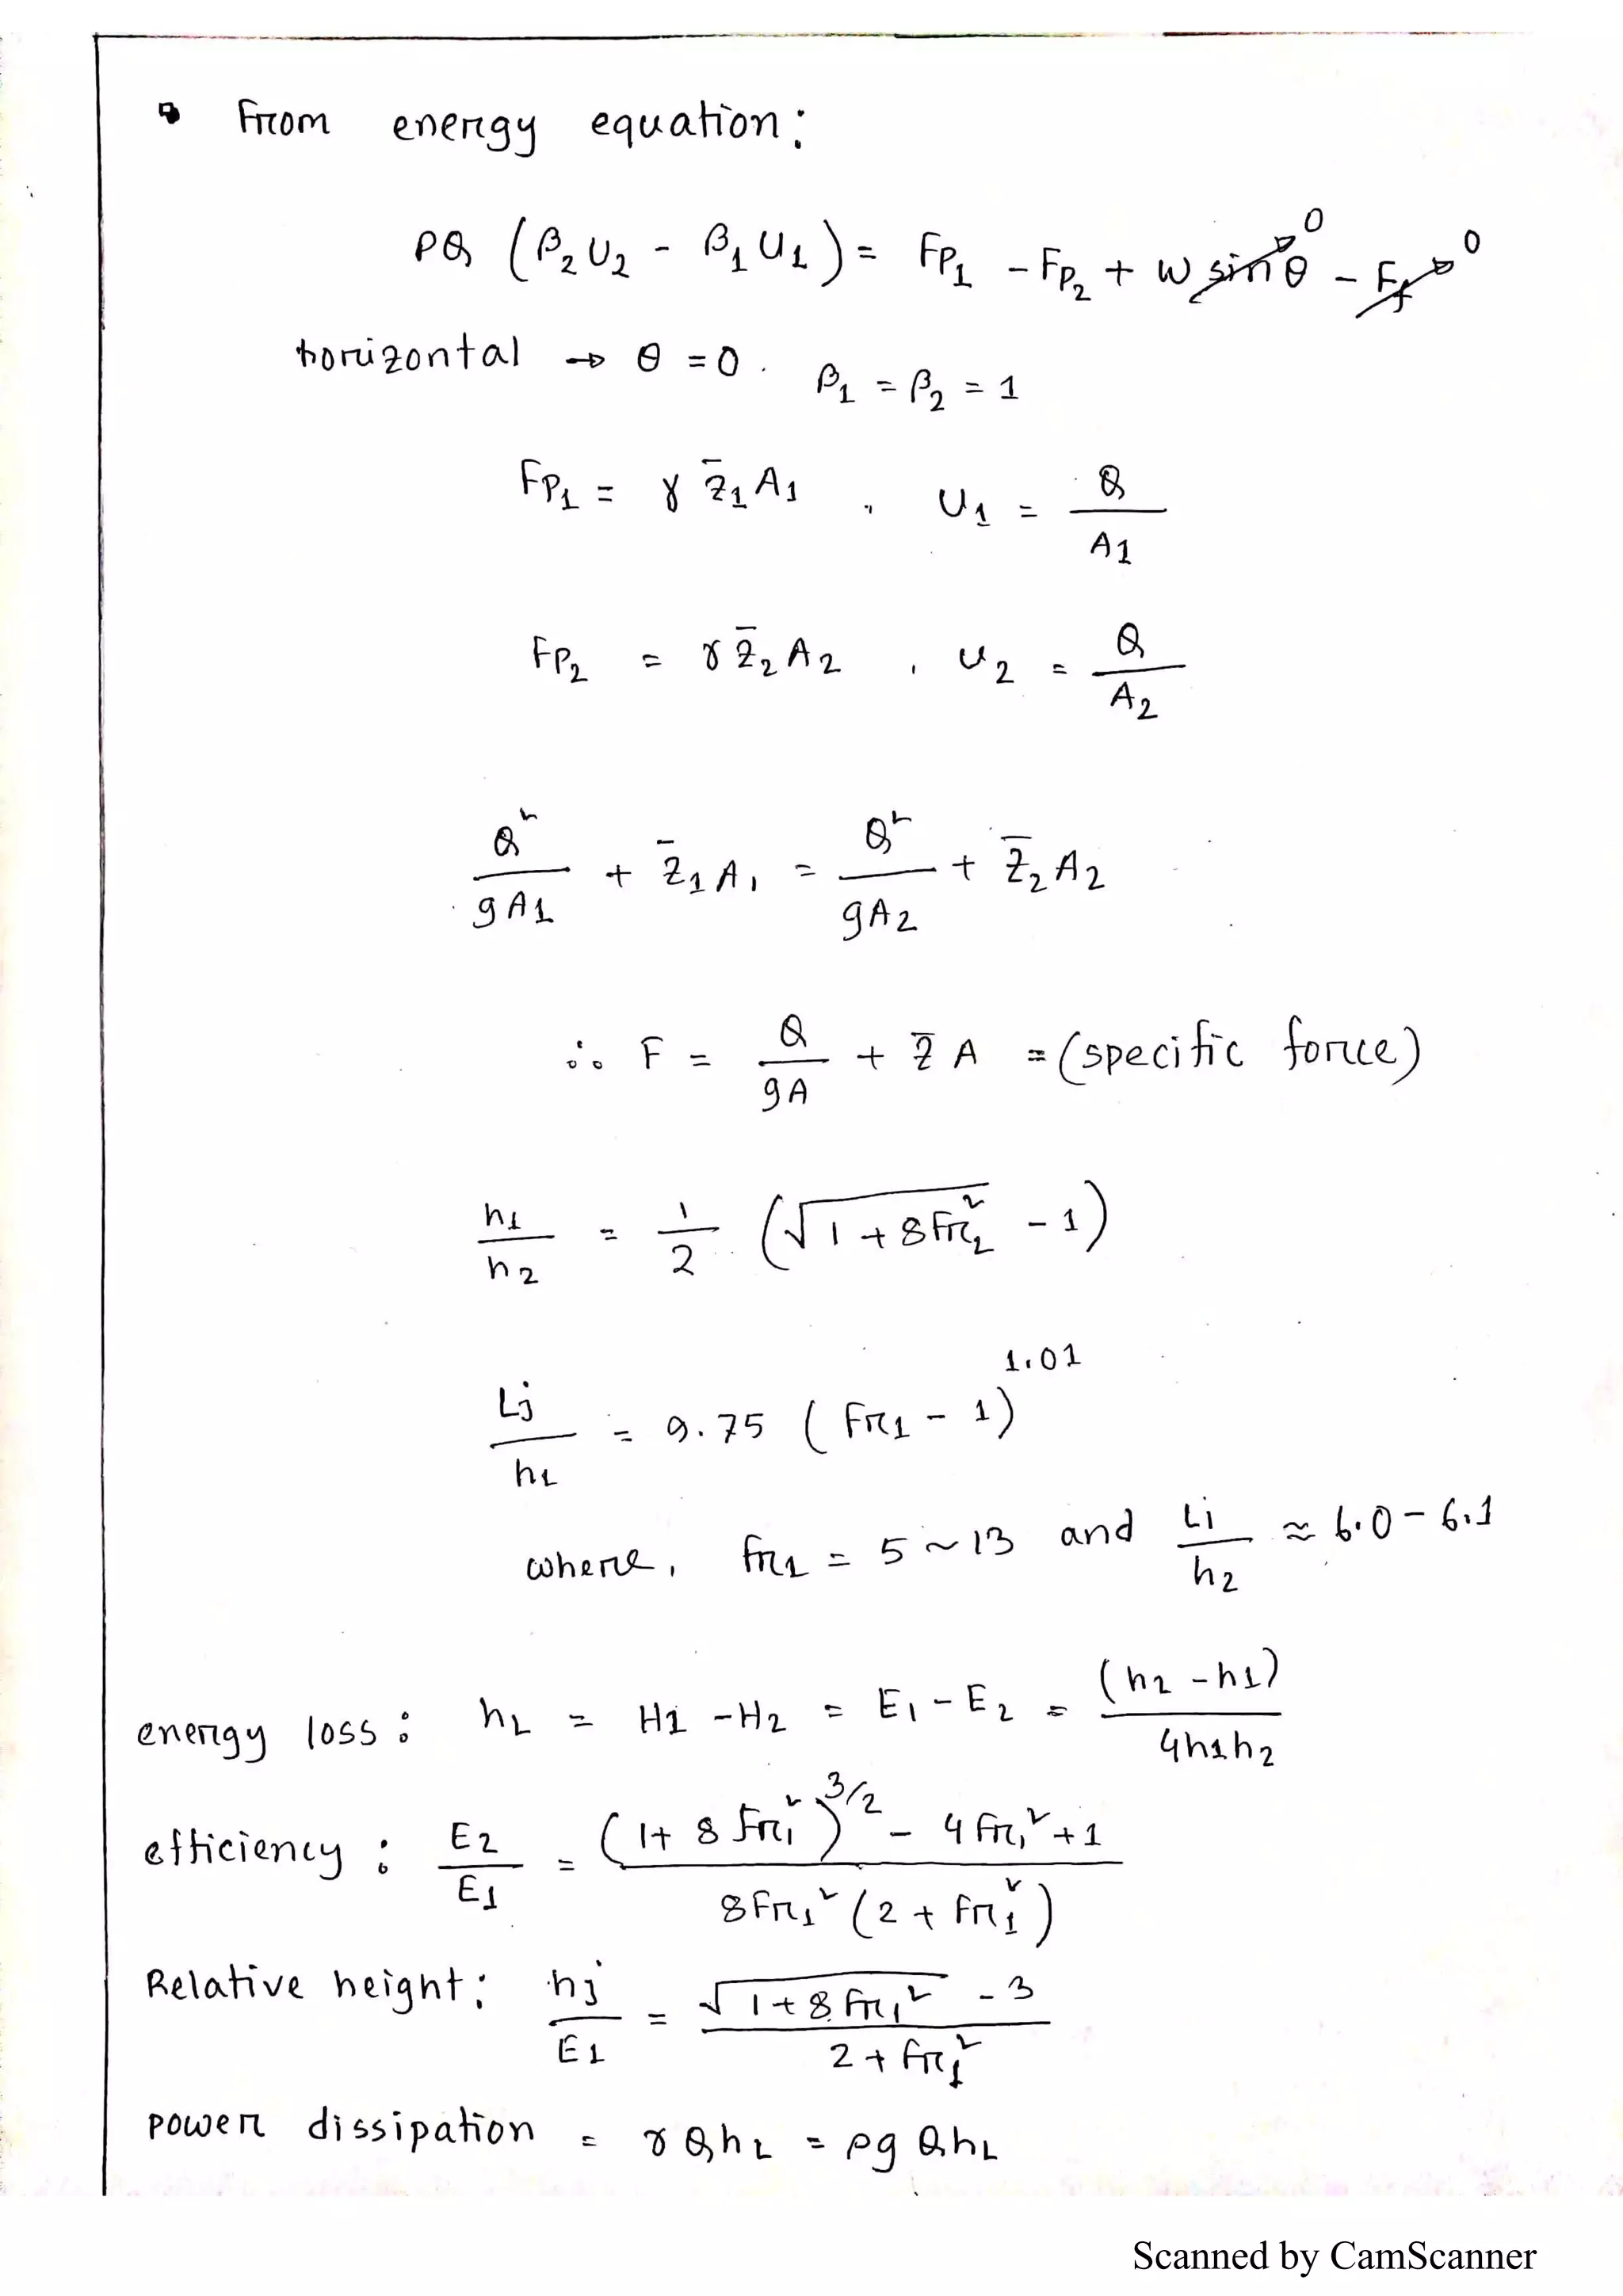 From energy equation:
ρQ (β₂U₂ - β₁U₁) = FP₁ - FP₂ + W sinθ → 0 - Ff → 0
horizontal → θ = 0. β₁ = β₂ = 1
FP₁ = γ z̄₁A₁ , U₁ = Q/A₁
FP₂ = γ z̄₂A₂ , U₂ = Q/A₂
Q²/gA₁ + z̄₁A₁ = Q²/gA₂ + z̄₂A₂
∴ F = Q/gA + z̄ A = (specific force)
h₁/h₂ = 1/2 (√(1 + 8Fr₂²) - 1)
Lj/h₁ = 9.75 (Fr₁ - 1)^1.01
where, Fr₁ = 5 ~ 13 and Lj/h₂ ≈ 6.0 - 6.1
energy loss : hL = H1 - H2 = E1 - E2 = (h2 - h1)/4h1h2
efficiency : E2/E1 = ((1 + 8 Fr₁²)^3/2 - 4 Fr₁² + 1)/(8Fr₁² (2 + Fr₁²))
Relative height : hj/E1 = (√(1 + 8 Fr₁²) - 3)/(2 + Fr₁²)
power dissipation = γQhL = ρgQhL
Scanned by CamScanner